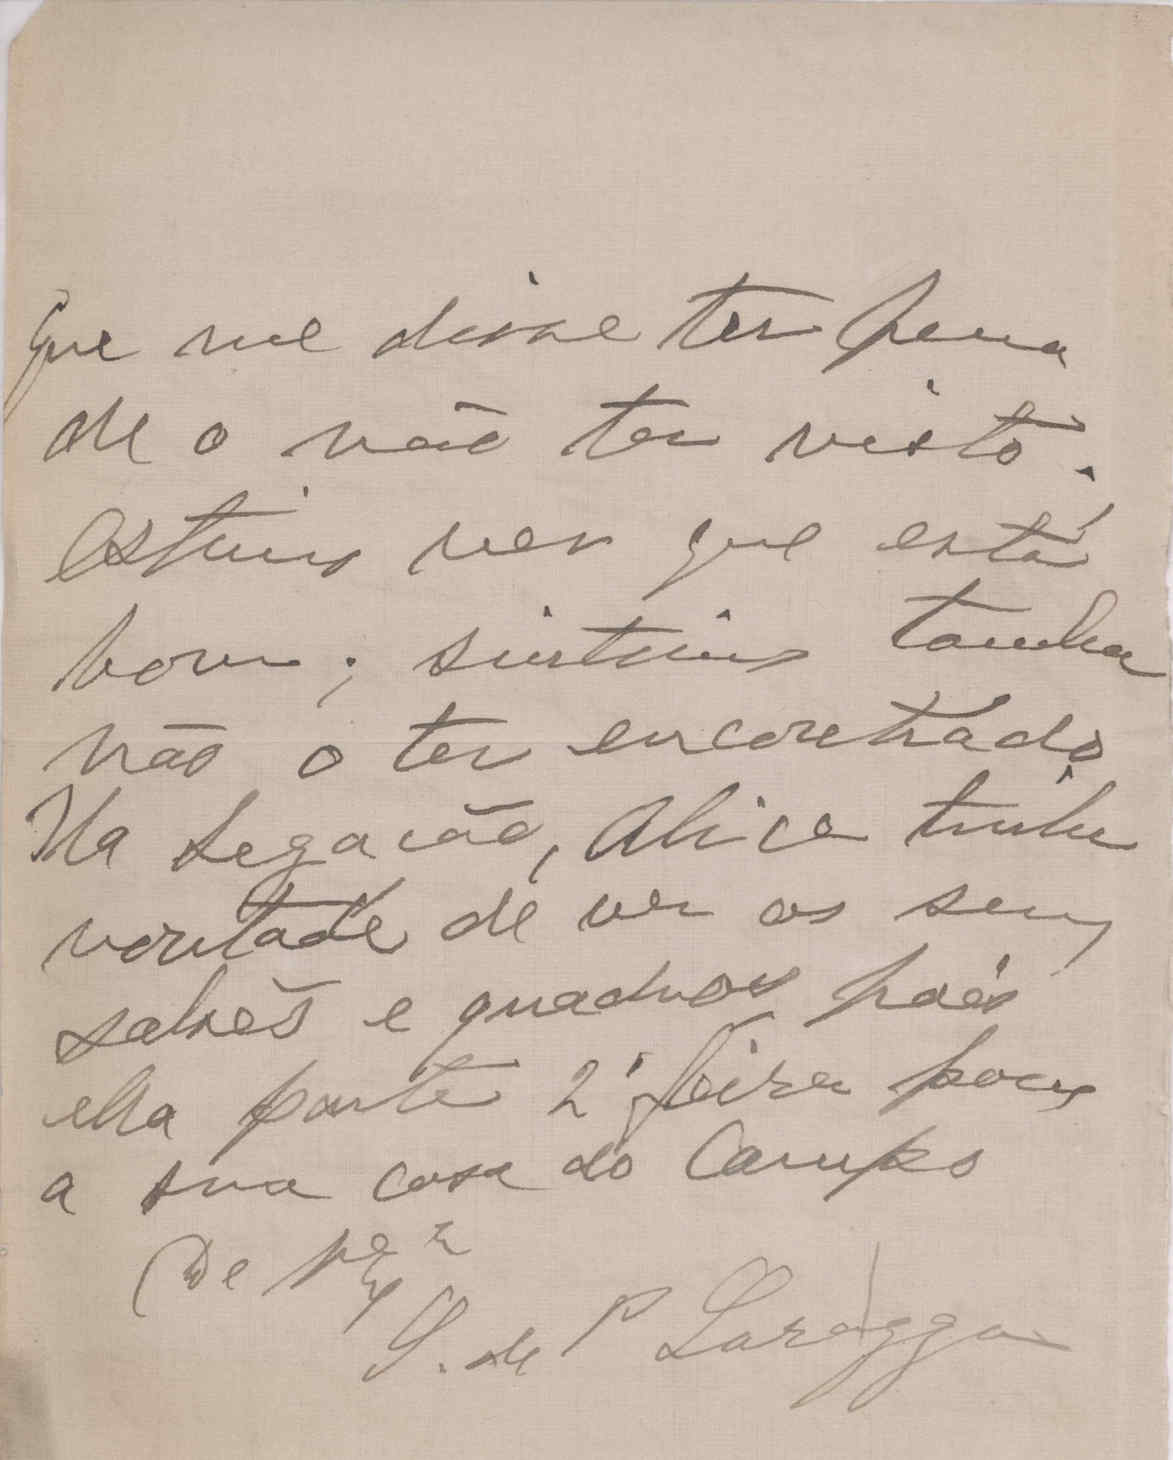 que me disse ter pena
de o não ter visto.
Estimo ver que está
bom; sintimos tambem
não o ter encontrado
Na Legacão, Alice tinha
vontade de ver os seus
salões e quadros pois
ella parte 2ª feira para
a sua casa do Campo
De
S. de P